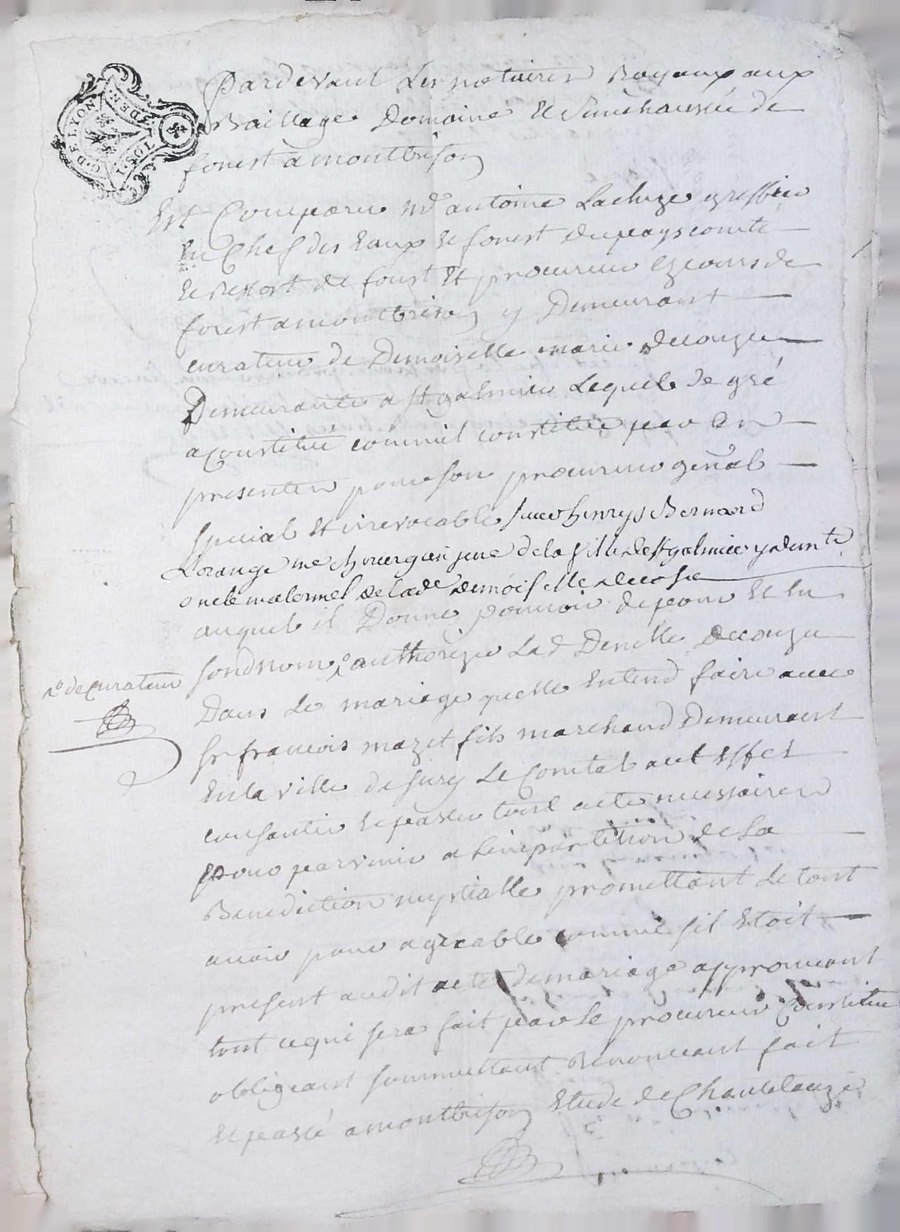 G. DE LYON DEN
Pardevant Les notaires Royaux aux
Baillage Domaine et Senechaussée de
forest a montbrison
Est Comparu Mᵉ antoine Lachize greffier
En Chef des Eaux et forest du pays comté
et Ressort de foust Et procureur Ez cours de
forest a montbrison y Demeurant
curateur de Demoiselle marie Decouzu
Demeurante a St galmier Lequel de gré
a Constitué comme il constitue par Ces
presentes pour son procureur genal
special Et irrevocable Bernard
Lorange me chirurgien juré de la ville de St galmier y demt
oncle maternel de lade demoiselle
auquel il Donne pouvoir de pour Et En
sondnom authorizer Lad Denelle Decouzu
no de Curateur
Dans Le mariage quelle Entend faire avec
sr francois mazet fils marchand Demeurant
En la ville de sury Le Comtal aut Effet
consantir et passer tout acte necessaires
pour parvenir a Linpartition de La
Benediction nuptialle promettant Le tout
avoir pour agreable comme sil Etoit
present audit acte de mariage approuvant
tout ce qui sera fait par Le procureur Constitué
obligeant soumettant Renonceant fait
Et passé a montbrison Etude de Chantelauze